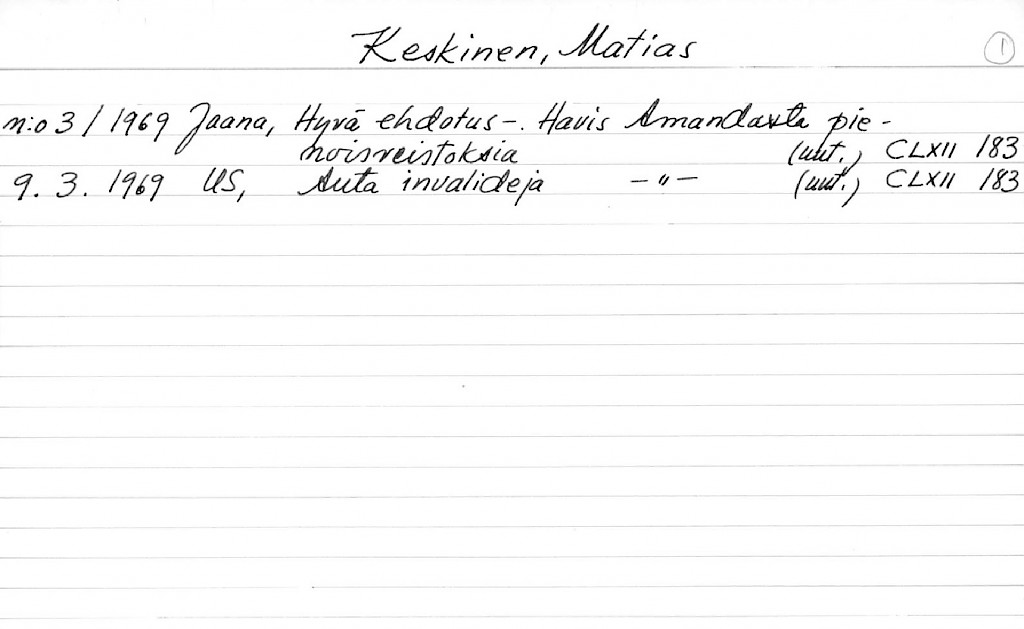 Keskinen, Matias 1
n:o 3 / 1969 Jaana, Hyvä ehdotus -. Havis Amandasta pie-
noisveistoksia (uut.) CLXII 183
9. 3. 1969 US, Auta invalideja -"- (uut.) CLXII 183